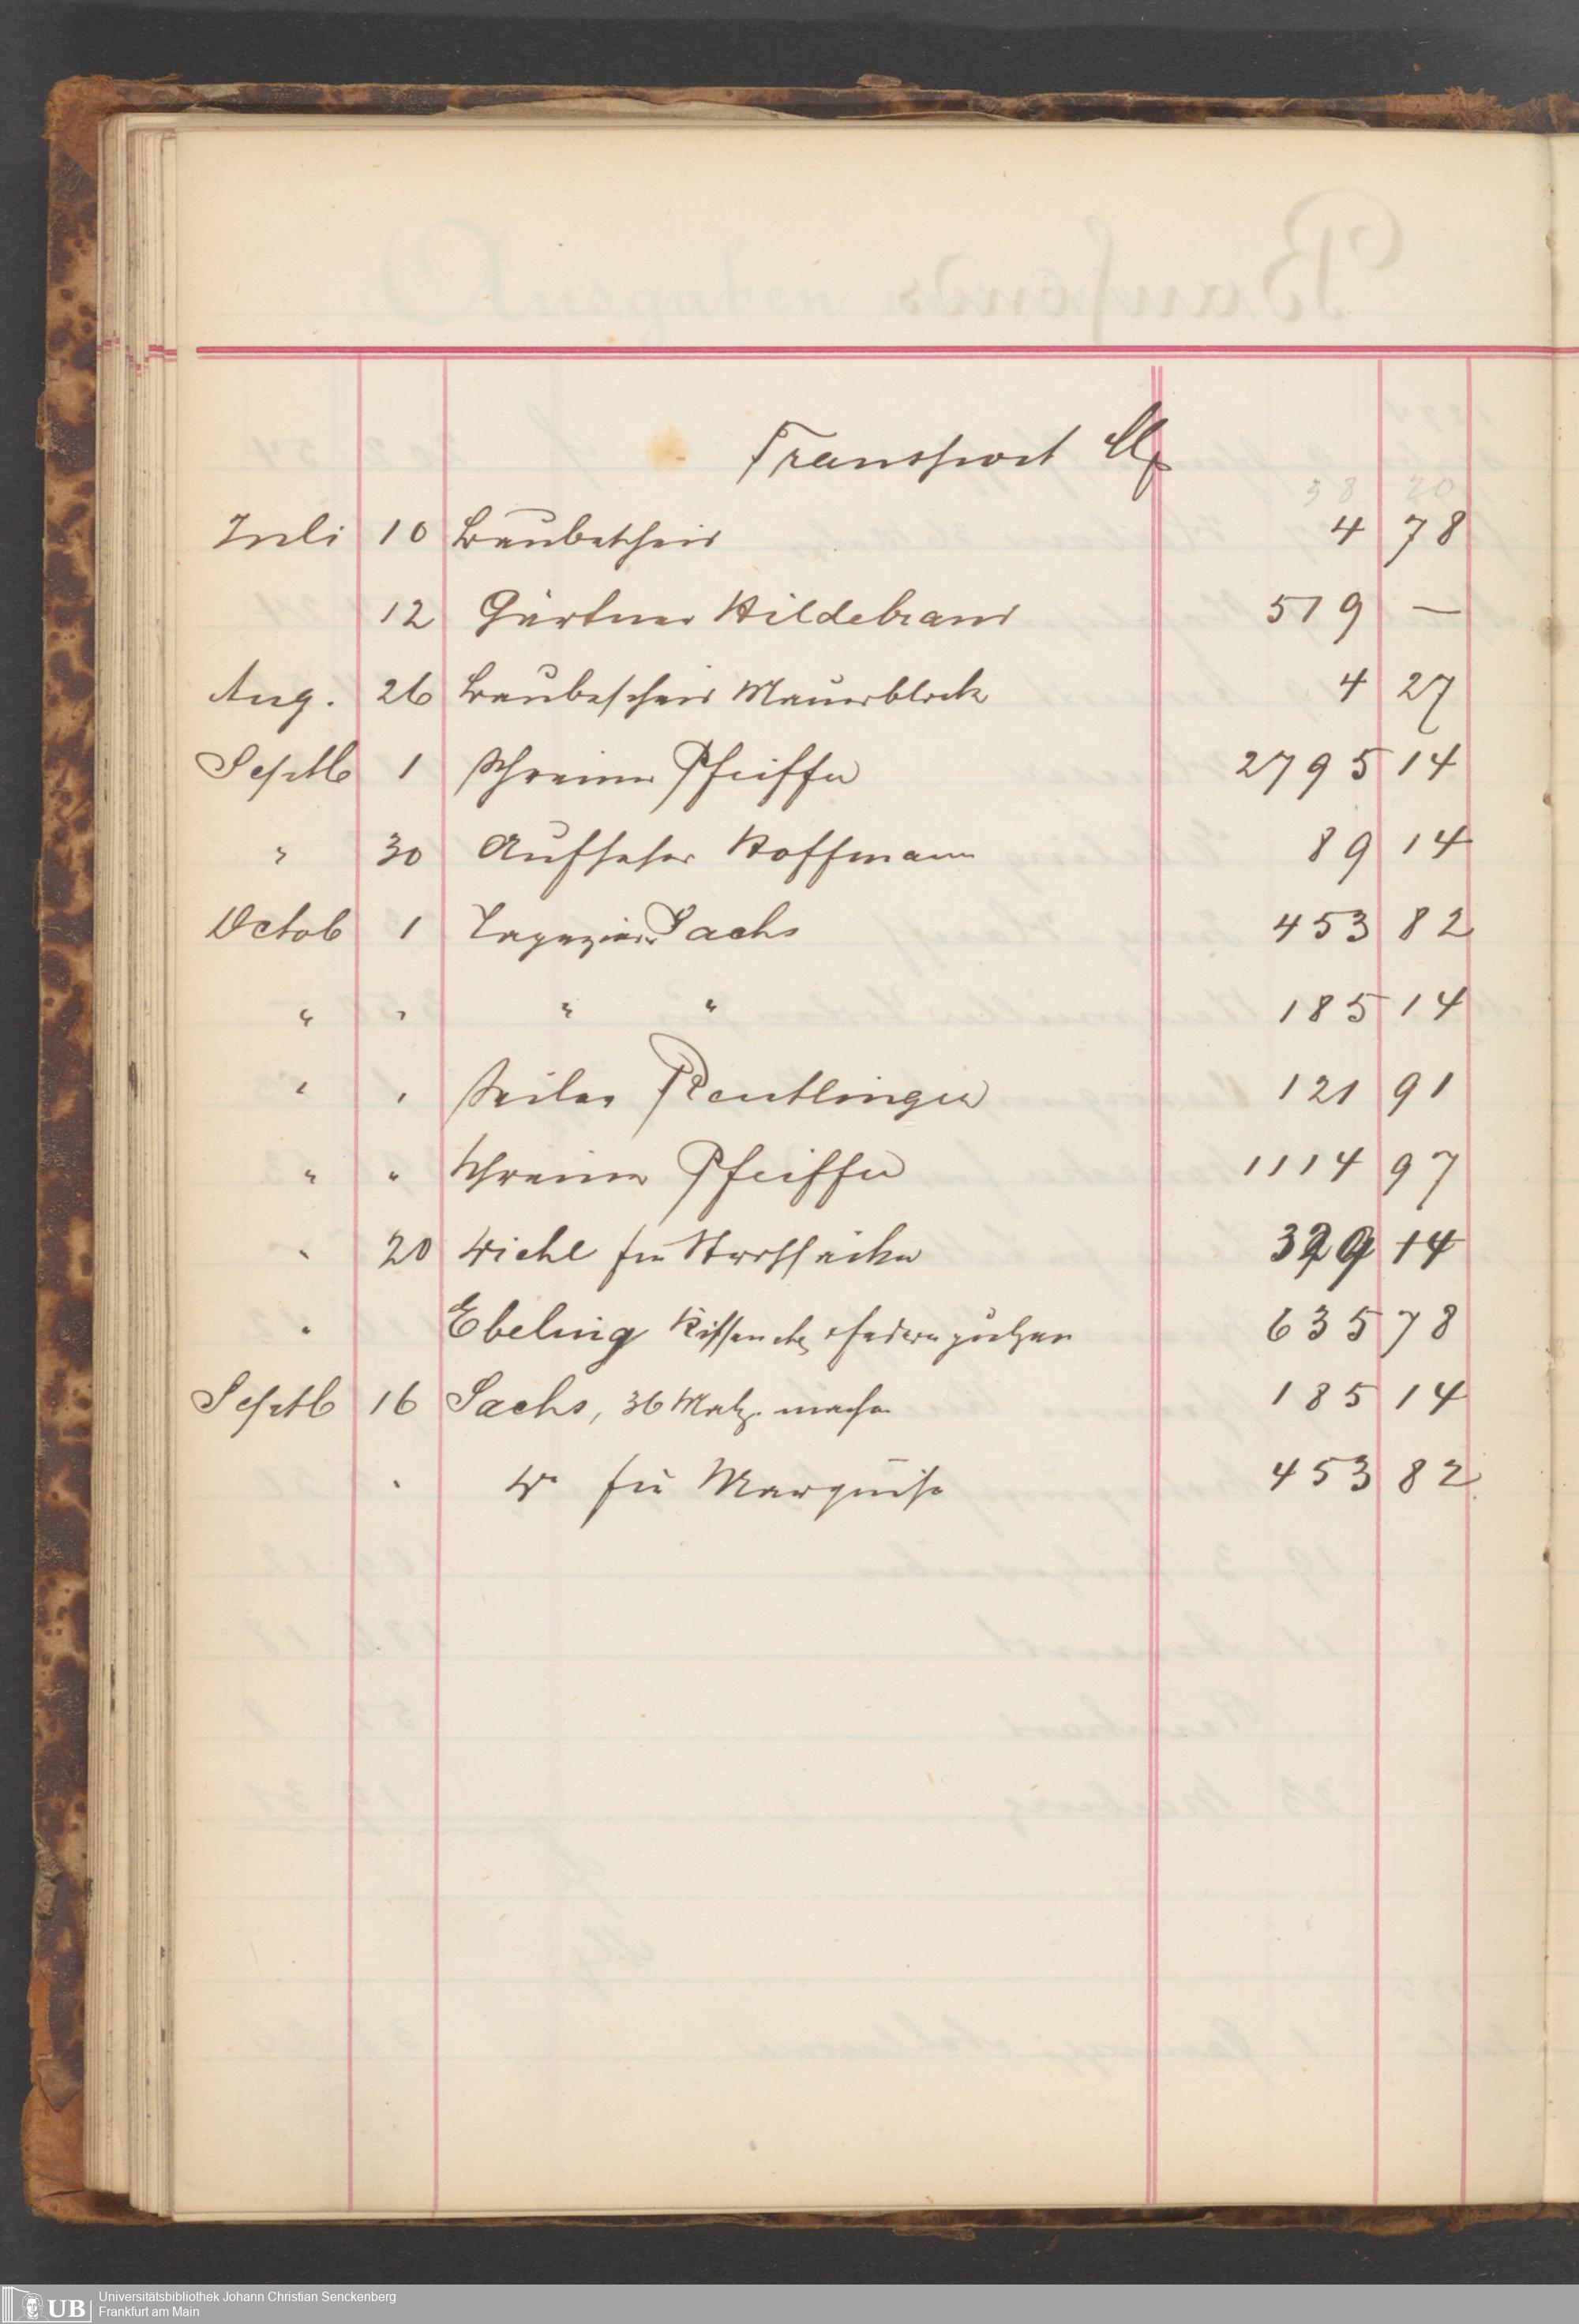 Transport M
38 20
Juli 10 Baubescheid 4 78
12 Gärtner Hildebrand 519 —
Aug. 26 Baubescheid Mauerblock 4 27
Septb 1 Schreiner Pfeiffer 2795 14
" 30 Aufseher Hoffmann 89 14
Octob 1 Tapezier Sachs 453 82
" " " " 185 14
" " Seiler Reutlinger 121 91
" " Schreiner Pfeiffer 1114 97
" 20 für 14
" Ebeling Kissen etc 635 78
Septb 16 Sachs, 36 Matz. machen 185 14
" do für Marquise 453 82
UB Universitätsbibliothek Johann Christian Senckenberg
Frankfurt am Main